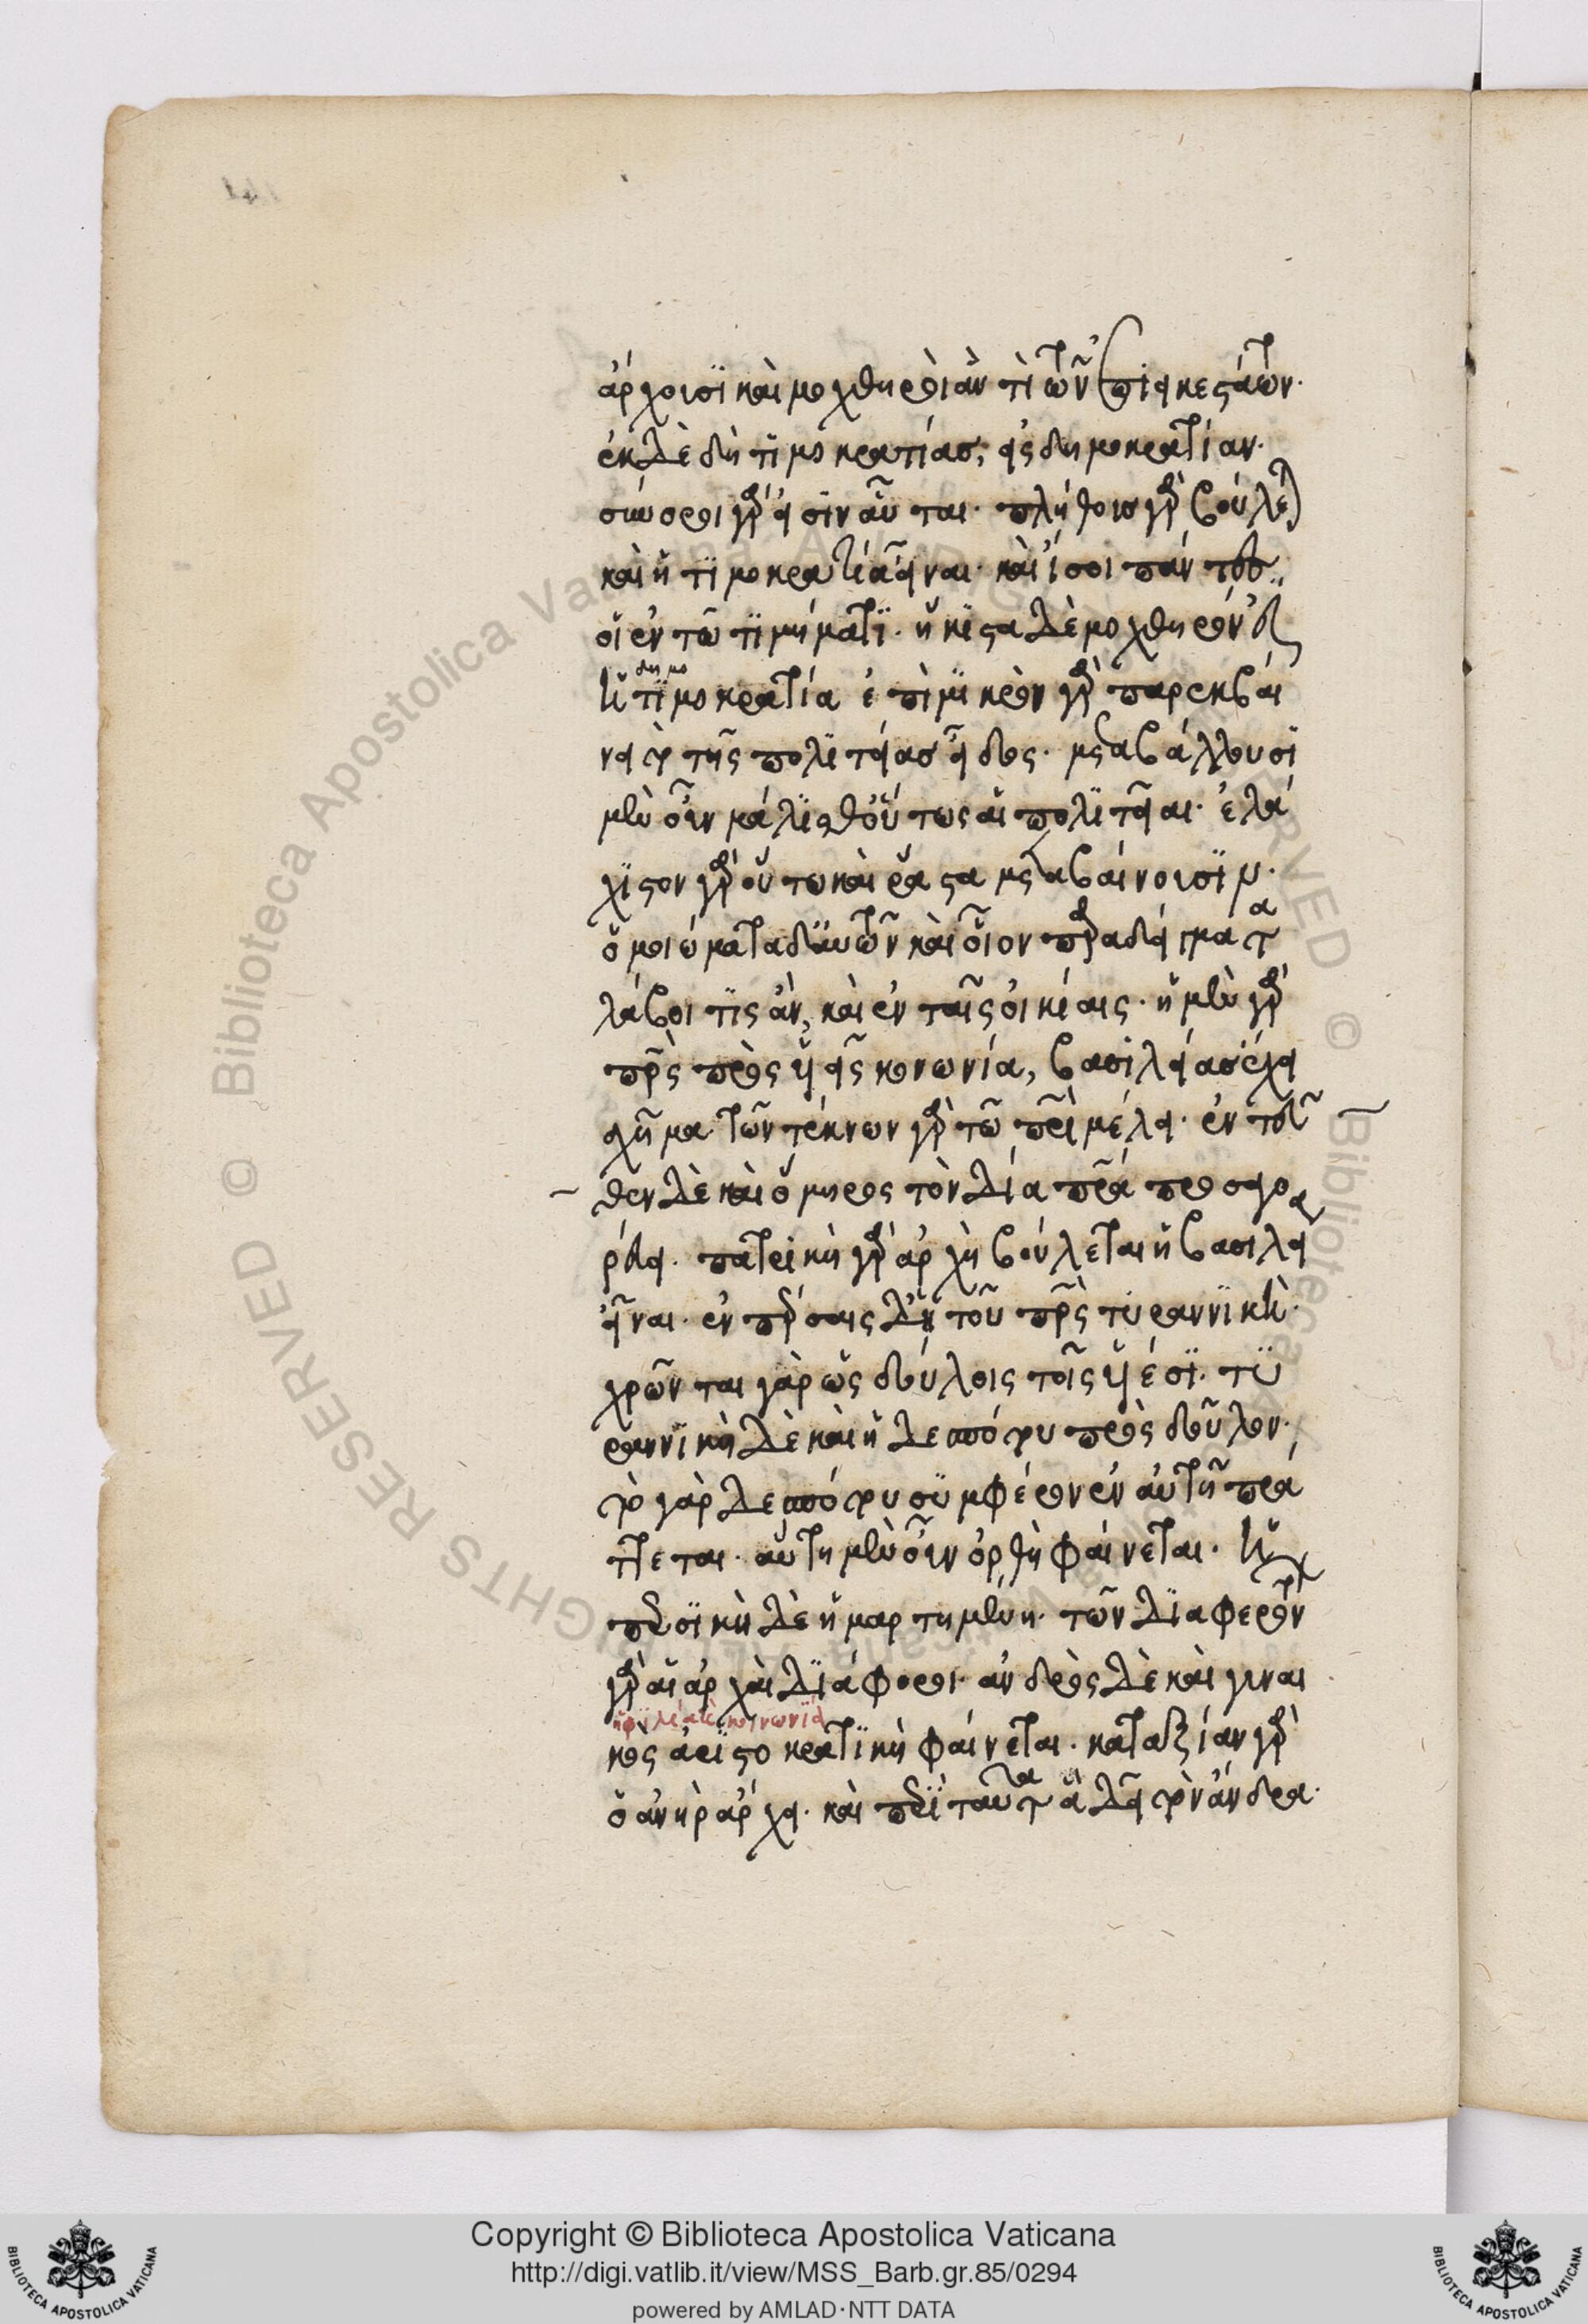 ἄρχουσι καὶ μοχθηροὶ ἀντὶ τῶν ἐπιεικεστάτων·
ἐκ δὲ δὴ τιμοκρατίας, εἰς δημοκρατίαν·
σύνοροι γάρ εἰσιν αὗται· πλήθους γὰρ βούλεται
καὶ ἡ τιμοκρατία εἶναι· καὶ ἴσοι πάντες
οἱ ἐν τῶ τιμήματι· ἥκιστα δὲ μοχθηρόν ἐστιν
ἡ τιμοκρατία ἐπὶ μικρὸν γὰρ παρεκβαί
δημο
νει τὸ τῆς πολιτείας εἶδος· μεταβάλλουσι
μὲν οὖν μάλισθ' οὕτως αἱ πολιτεῖαι· ἐλά
χιστον γὰρ οὕτω καὶ ῥᾶστα μεταβαίνουσιν·
ὁμοιώματα δ' αὐτῶν καὶ οἷον παραδείγματα
λάβοι τις ἄν, καὶ ἐν ταῖς οἰκίαις· ἡ μὲν γὰρ
πρὸς υἱεῖς κοινωνία, βασιλείας ἔχει
σχῆμα· τῶν τέκνων γὰρ τῶ πατρὶ μέλει· ἐντεῦ
θεν δὲ καὶ ὅμηρος τὸν δία πατέρα προσαγο
ρεύει· πατρικὴ γὰρ ἀρχὴ βούλεται ἡ βασιλεία
εἶναι· ἐν πέρσαις δ' ἡ τοῦ πατρὸς τυραννική·
χρῶνται γὰρ ὡς δούλοις τοῖς υἱέσι· τυ
ραννικὴ δὲ καὶ ἡ δεσπότου πρὸς δούλους·
τὸ γὰρ δεσπότου συμφέρον ἐν αὐτῆ πρά
ττεται· αὕτη μὲν οὖν ὀρθὴ φαίνεται· ἡ
περσικὴ δὲ ἡμαρτημένη· τῶν διαφερόντων
γὰρ αἱ ἀρχαὶ διάφοροι· ἀνδρὸς δὲ καὶ γυναι
κοινωνία
κὸς ἀριστοκρατικὴ φαίνεται· κατ' ἀξίαν γὰρ
ὁ ἀνὴρ ἄρχει· καὶ περὶ ταῦτα ἃ δεῖ τὸν ἄνδρα·
Copyright © Biblioteca Apostolica Vaticana
http://digi.vatlib.it/view/MSS_Barb.gr.85/0294
powered by AMLAD·NTT DATA